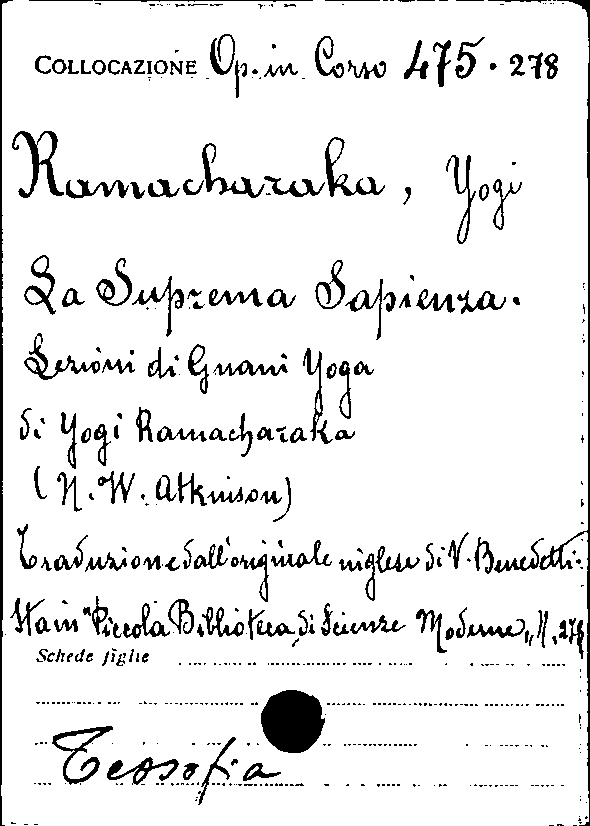 COLLOCAZIONE Op. in Corso 475. 278
Ramacharaka, Yogi
La Suprema Sapienza.
Lezioni di Gnani Yoga
di Yogi Ramacharaka
(N. W. Atkinson)
Traduzione dall'originale inglese di V. Benedetti.
Sta in "Piccola Biblioteca di Scienze Moderne„ N. 278
Schede figlie
Teosofia